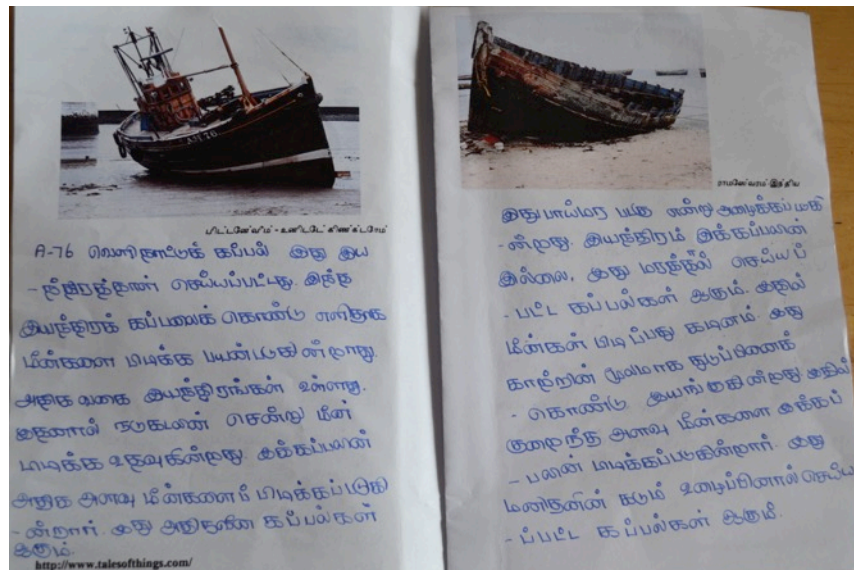 பிட்டன்வீம் - உனிடட் கிண்க்டம்
A-76 வெளிநாட்டுக் கப்பல் இது இய
- ந்திரத்தால் செய்யப்பட்டது. இந்த
இயந்திரக் கப்பலைக் கொண்டு எளிதாக
மீன்களை பிடிக்க பயன்படுகின்றது.
அதிக வகை இயந்திரங்கள் உள்ளது.
இதனால் நடுகடலில் சென்று மீன்
பிடிக்க உதவுகின்றது. இக்கப்பலின்
அதிக அளவு மீன்களைப் பிடிக்கப்படுகி
- ன்றார். இது அதிநவீன கப்பல்கள்
ஆகும்.
http://www.talesofthings.com/
ராமனேஸ்வரம் இந்திய
இது பாய்மர படகு என்று அழைக்கப்படுகி
- ன்றது. இயந்திரம் இக்கப்பலின்
இல்லை, இது மரத்தில் செய்யப்
- பட்ட கப்பல்கள் ஆகும். இதில்
மீன்கள் பிடிப்பது கடினம். இது
காற்றின் மூலமாக துடுப்பினைக்
- கொண்டு இயங்குகின்றது. இதில்
குறைந்த அளவு மீன்களை இக்கப்
- பலின் பிடிக்கப்படுகின்றார். இது
மனிதனின் கடும் உழைப்பினால் செய்ய
- ப்பட்ட கப்பல்கள் ஆகும்.